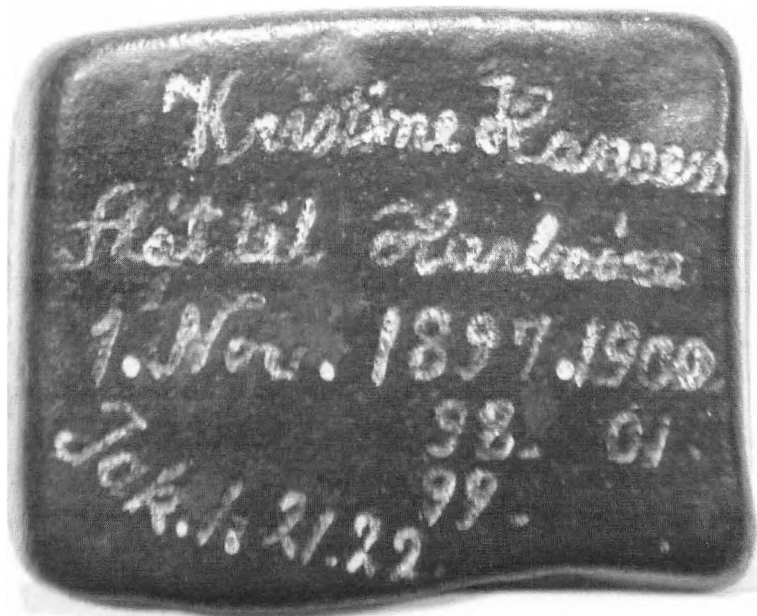 Kristine Hansen
fløt til
1. Nov. 1897. 1900
98. 01.
99.
Jak. 1, 21. 22.